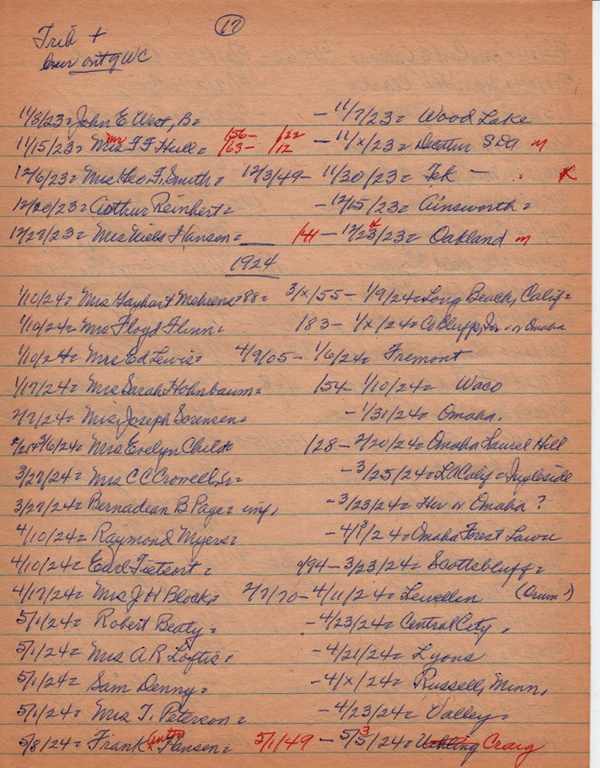 17
Trib +
bur out of WC
11/8/23= John E West, B= - 11/7/23= Wood Lake
11/15/23= Mrs F F Hull= 156- 1/22 163- 1/12 - 11/x/23= Decatur S D G m
12/6/23= Mrs Geo F. Smith= 12/3/49- 11/30/23= Tek - x
12/20/23= Arthur Reinhert= - 12/15/23= Ainsworth=
12/27/23= Mrs Niels Hansen= 141 - 12/23/23= Oakland m
1924
1/10/24= Mrs Gayhart Mehrens=88= 3/x/55- 1/9/24= Long Beach, Calif=
1/10/24= Mrs Floyd Flinn= 183- 1/x/24= Co Bluffs, Ia - or Omaha
1/10/24= Mrs Ed Lewis= 4/9/05- 1/6/24= Fremont
1/17/24= Mrs Sarah Hohnbaum= 154- 1/10/24= Waco
2/7/24= Mrs Joseph Sorensen= - 1/31/24= Omaha.
2/21+3/6/24= Mrs Evelyn Child= 128- 2/20/24= Omaha Laurel Hill
3/27/24= Mrs C C Crowell, Sr= - 3/25/24= LA Calif= Ingleside
3/27/24= Bernadean B. Page= inf, - 3/23/24= Her or Omaha ?
4/10/24= Raymond Myers= - 4/9/24= Omaha Forest Lawn
4/10/24= Earl Tietsort= 9/94- 3/23/24= Scottsbluff=
4/17/24= Mrs J H Block= 2/7/70- 4/11/24= Lewellen (Orum?)
5/1/24= Robert Beaty= - 4/23/24= Central City,
5/1/24= Mrs A R Loftis, - 4/21/24= Lyons
5/1/24= Sam Denny= - 4/x/24= Russell, Minn,
5/1/24= Mrs T. Peterson= - 4/23/24= Valley=
5/8/24= Frank Hansen= 5/1/49 - 5/3/24= Uehling Craig